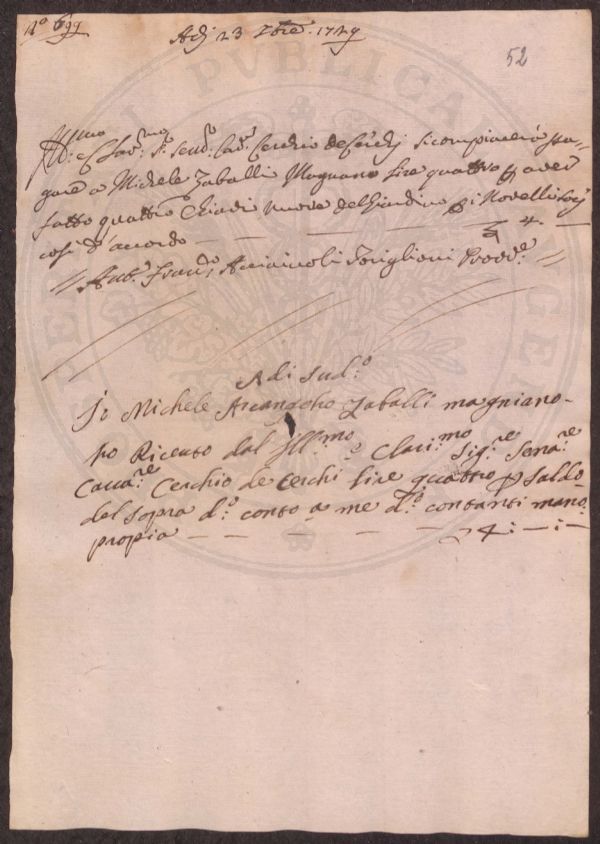 N.º 6
Adj 23 7bre 1729
52
Ill.mo e Clar.mo S.r Sen.re Cav.re Cerchio de Cerchj si compiacerà pa=
gare a Michele Zaballi Magnano lire quattro p aver
fatto quattro Chiavi nuove del Giardino p i Novelli
così d'accordo — — — — — 4. —
Franc.o Acciaiuoli Provv.re
Adi sud.o
Io Michele Arcangelo Zaballi magniano
ho Riceuto dal Ill.mo e Clari.mo Sig.re Sena.re
Caua.re Cerchio de Cerchi lire quattro p saldo
del sopra d.o conto a me d.o contanti mano
propia — — — — — 4: — : —
PUBLICA